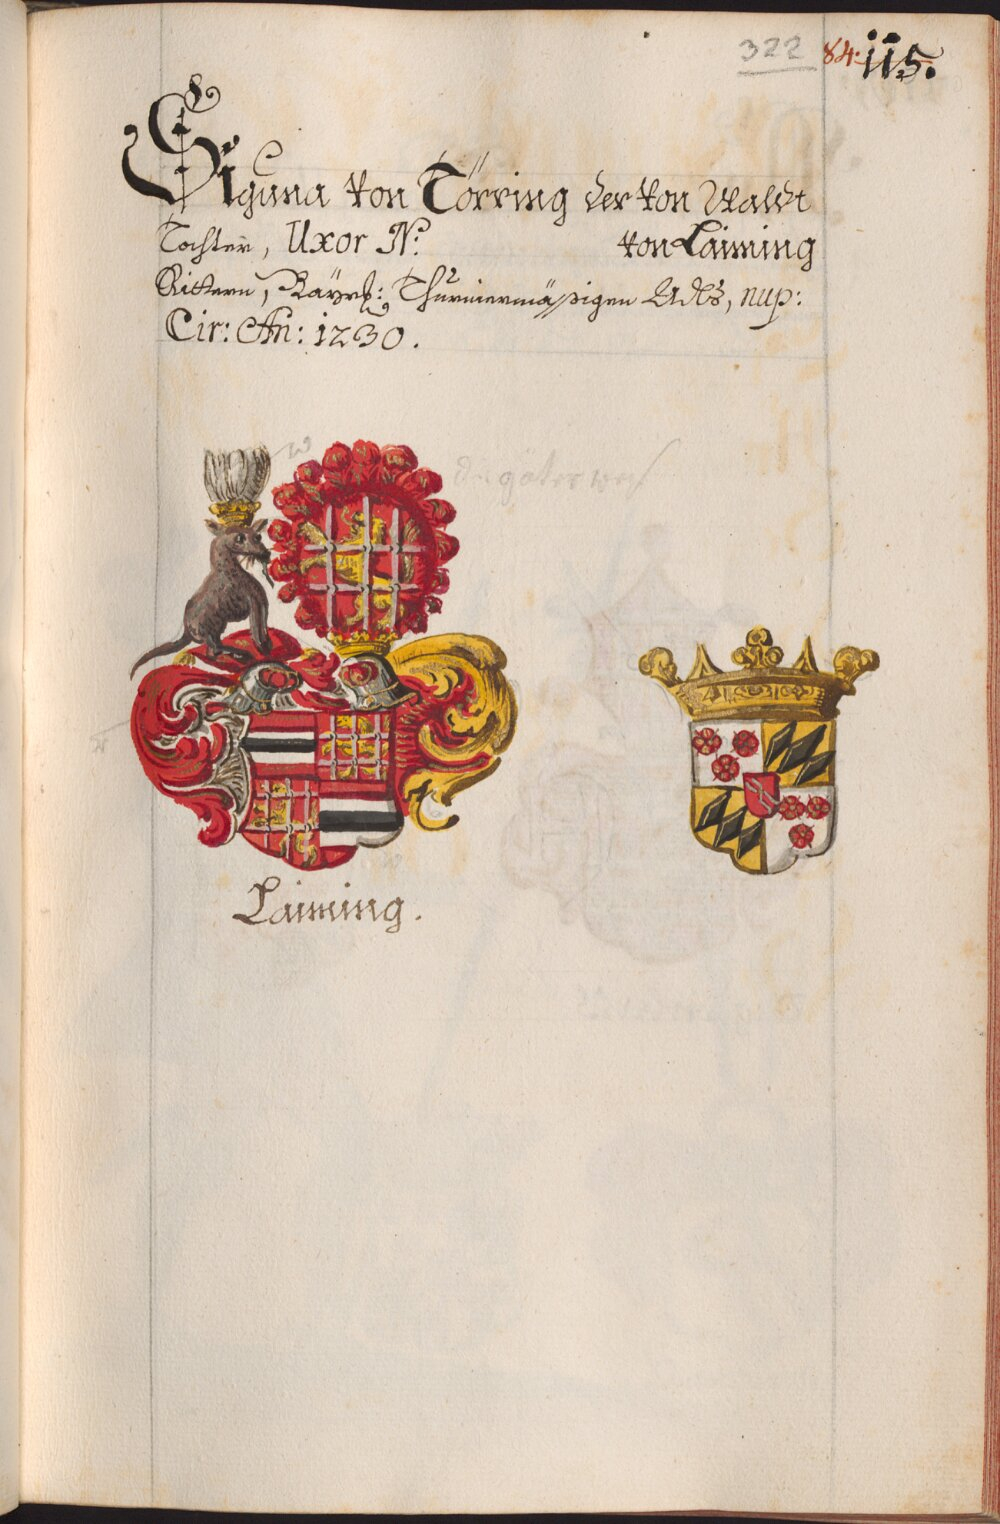 322 84. 115.
Siguna von Törring der von Waldt
Tochter, Uxor N: von Laiming
Rittern, Bayrl: Thurniermässigen Adls, nup:
Cir: An: 1230.
Laiming.